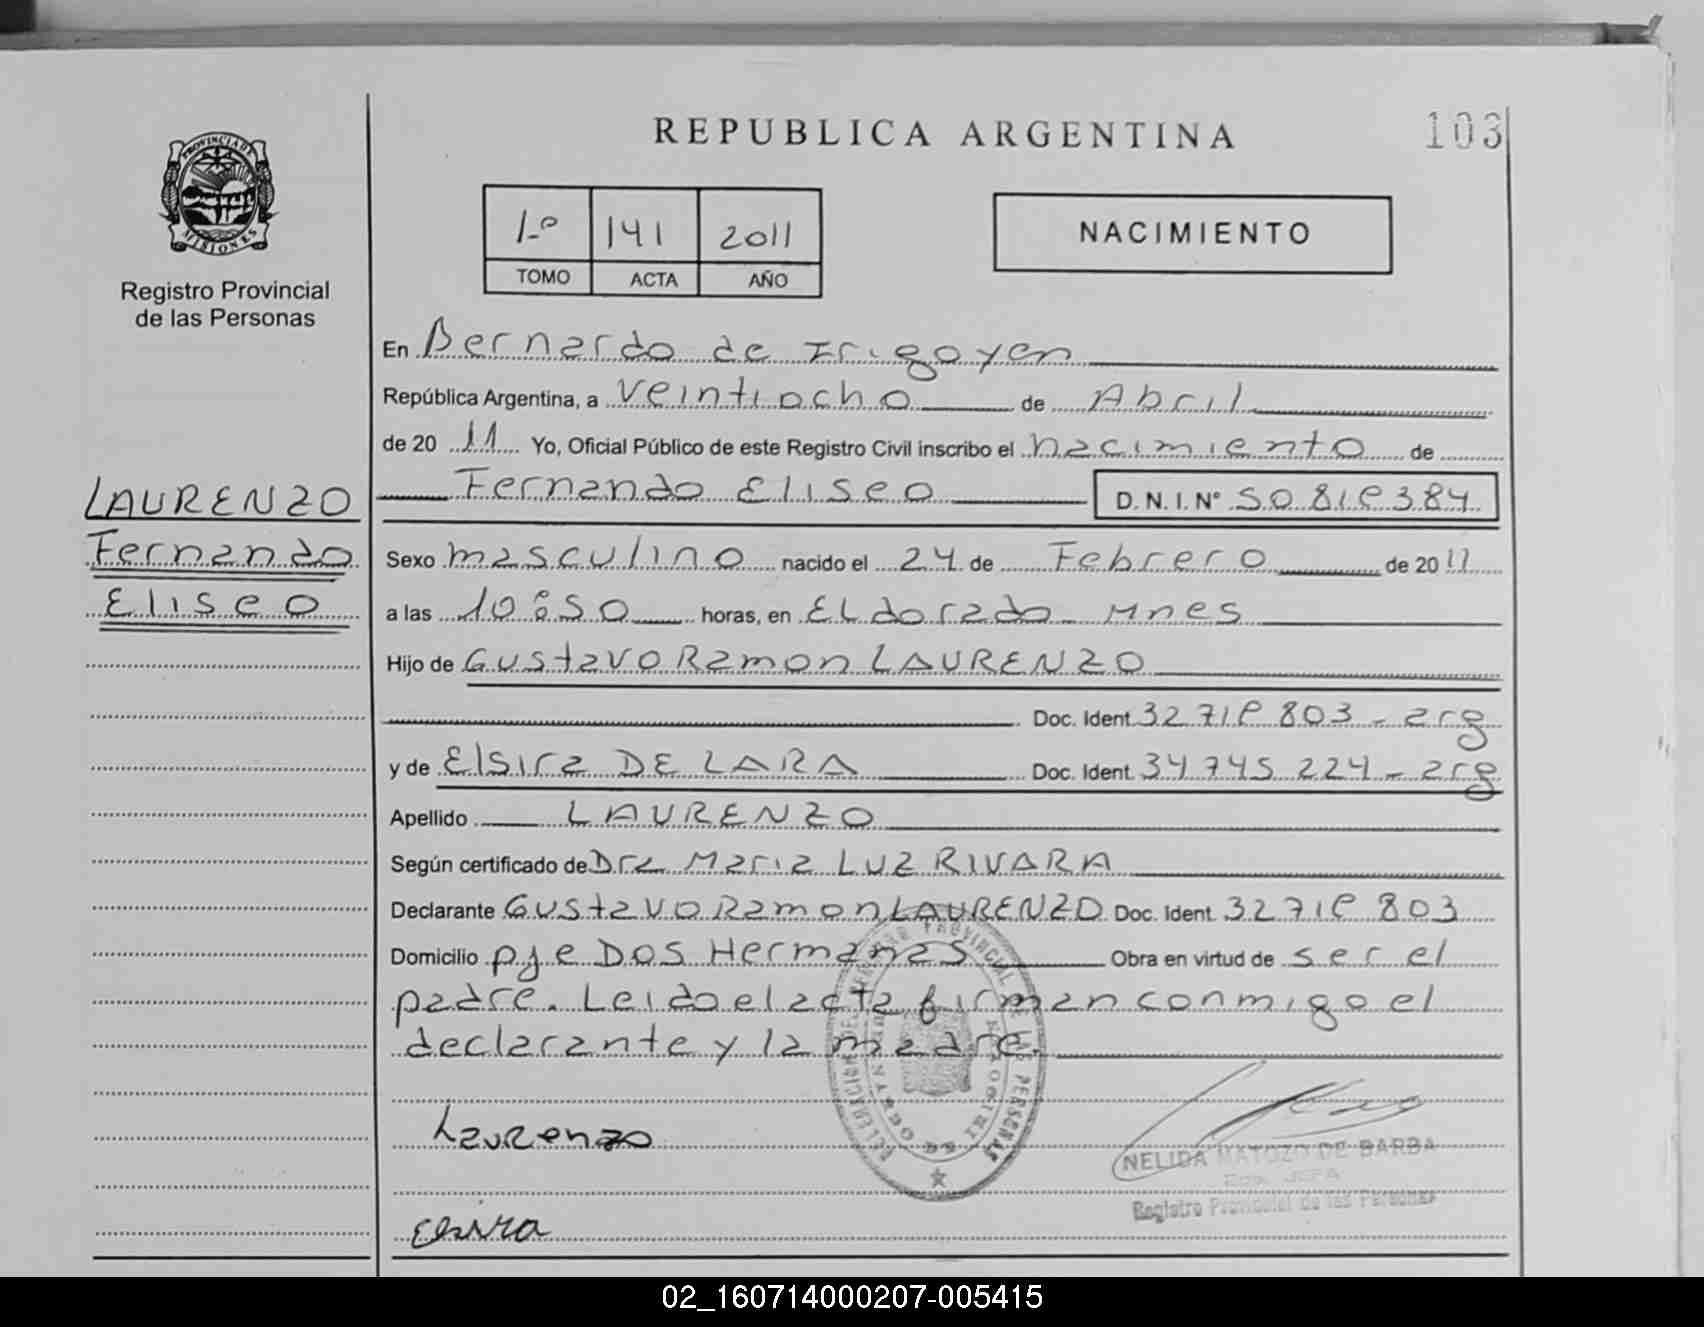 REPUBLICA ARGENTINA
103
PROVINCIA DE
MISIONES
Registro Provincial
de las Personas
1º 141 2011
TOMO ACTA AÑO
NACIMIENTO
En Bernardo de Irigoyen
República Argentina, a Veintiocho de Abril
de 20 11 Yo, Oficial Público de este Registro Civil inscribo el nacimiento de
LAURENZO
Fernando
Eliseo
Fernando Eliseo D.N.I.Nº
Sexo masculino nacido el 24 de Febrero de 20 11
a las 10:50 horas, en ELdorado Mnes
Hijo de Gustavo Ramon LAURENZO
Doc. Ident. 803 - arg
y de Elsira DE LARA Doc. Ident. 34 745 224 - arg
Apellido LAURENZO
Según certificado de Dra Maria LUZ RIVARA
Declarante Gustavo Ramon LAURENZO Doc. Ident. 803
Domicilio pje Dos Hermanas Obra en virtud de ser el
padre. Leido el acta firman conmigo el
declarante y la madre.
Laurenzo
NELIDA MATOZO DE BARBA
JEFA
Registro Provincial de las Personas
Elsira
02_160714000207-005415